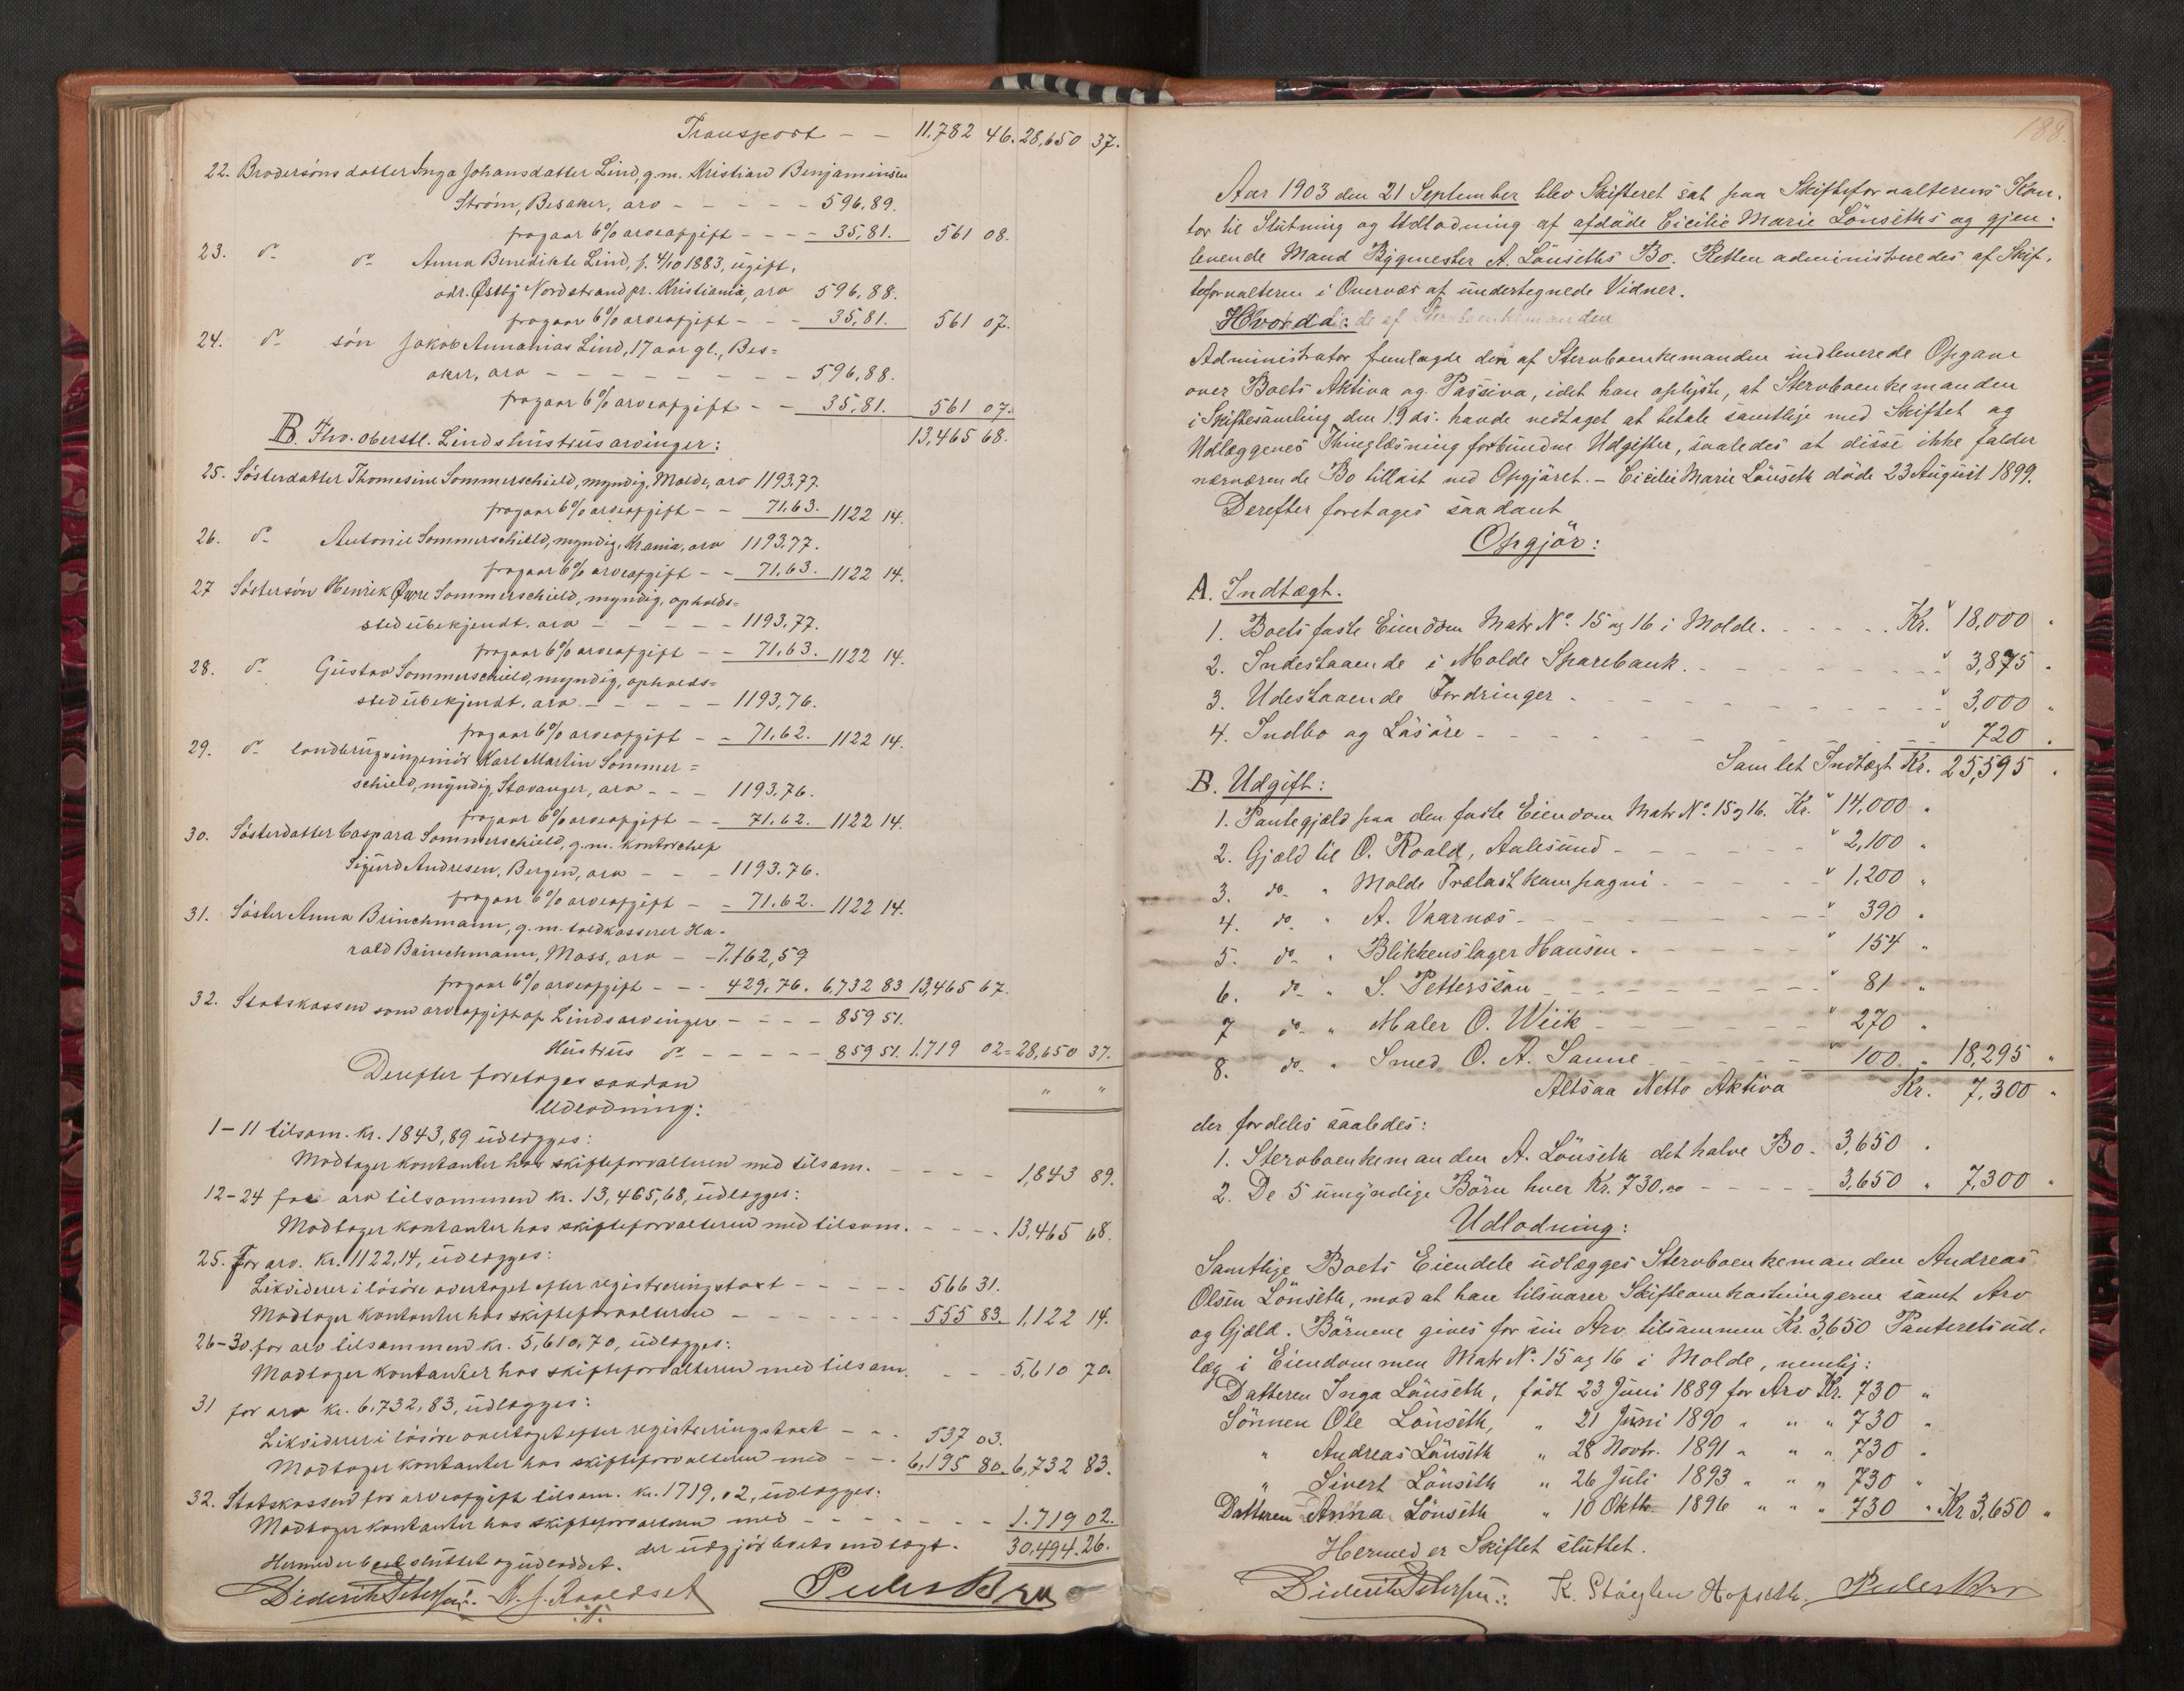 Transport - - 11,782 46. 28,650 37.
22. Brodersöns datter Inga Johansdatter Lind, g.m. Kristian Benjaminsen
Ström, Besaker, arv - - - - - 596,89.
fragaar 6% arveafgift - - - 35,81. 561 08.
23. do do Anna Benedikte Lind, f. 4/10 1883, ugift,
adr. Østby Nordstrand pr. Kristiania, arv 596,88.
fragaar 6% arveafgift - - - 35,81. 561 07.
24. do sön Jakob Annanias Lind, 17 aar gl., Bes=
aker, arv - - - - - - - 596,88.
fragaar 6% arveafgift - - 35,81. 561 07.
B. Fhv. oberstl. Linds hustrus arvinger: 13,465 68.
25. Sösterdatter Thomesine Sommerschield, myndig, Molde, arv 1193,77.
fragaar 6% arveafgift - - 71,63. 1122 14.
26. do Antonie Sommerschield, myndig, Krania, arv 1193,77.
fragaar 6% arveafgift - - 71,63. 1122 14.
27 Söstersön Henrik Øwre Sommerschield, myndig, opholds=
sted ubekjendt. arv - - - - - 1193,77.
fragaar 6% arveafgift - - 71,63. 1122 14.
28. do Gustav Sommerschield, myndig, opholds=
sted ubekjendt. arv - - - - - 1193,76.
fragaar 6% arveafgift - - 71,62. 1122 14.
29. do landbrugsingeniör Karl Martin Sommer=
schield, myndig, Stavanger, arv - - - 1193,76.
fragaar 6% arveafgift - - 71,62. 1122 14.
30. Sösterdatter Caspara Sommerschield, g.m. kontorchef
Sigurd Andresen, Bergen, arv - - - 1193,76.
fragaar 6% arveafgift - - 71,62. 1122 14.
31. Söster Anna Brinchmann, g.m. toldkasserer Ha-
rald Brinchmann, Moss, arv - - 7,162,59
fragaar 6% arveafgift - - - 429,76. 6,732 83 13,465 67.
32. Statskassen som arveafgift af Linds arvinger - - - - 859 51.
Hustrus do - - - - - 859 51. 1.719 02 = 28,650 37.
Derefter foretages saadan " "
Udlodning:
1-11 tilsam. kr. 1843,89 udlægges:
Modtager kontanter hos skifteforvalteren med tilsam. - - - - 1,843 89.
12-24 for arv tilsammen kr. 13,465,68, udlægges:
Modtager kontanter hos skifteforvalteren med tilsam. - - - - 13,465 68.
25. For arv. kr. 1122,14, udlægges:
Likviderer i lösöre overtaget efter registreringstaxt - - - - - 566 31.
Modtager kontanter hos skifteforvalteren - - - - - - 555 83. 1,122 14.
26-30. for arv tilsammen kr. 5,610,70, udlægges:
Modtager kontanter hos skifteforvalteren med tilsam. - - - 5,610 70.
31 for arv kr. 6,732,83, udlægges:
Likviderer i lösöre overtaget efter registreringstaxt - - - 537 03.
Modtager kontanter hos skifteforvalteren med - - - 6,195 80. 6,732 83.
32. Statskassen for arveafgift tilsam. kr. 1719,02, udlægges:
Modtager kontanter hos skifteforvalteren med - - - - - - - 1.719 02.
der udgjör boets indtægt. 30,494.26.
Hermed er boet sluttet og udloddet.
Diderik Petersen. Peder Bro
188.
Aar 1903 den 21 September blev Skifteret sat paa Skifteforvalterens Kon-
tor til Slutning og Udlodning af afdöde Cicilie Marie Lönseths og gjen-
levende Mand Bygmester A. Lönseths Bo. Retten administreredes af Skif-
teforvalteren i Overvær af undertegnede Vidner.
Hvorda:
Administrator fremlagde den af Stervboenkemanden indleverede Opgave
over Boets Aktiva og Passiva, idet han oplyste, at Stervboenkemanden
i Skiftesamling den 19 ds. havde vedtaget at betale samtlige med Skiftet og
Udlæggenes Thinglæsning forbundne Udgifter, saaledes at disse ikke falder
nærværende Bo tillast ved Opgjöret. - Cicilie Marie Lönseth döde 23 August 1899.
Derefter foretages saadant
Opgjör:
A. Indtægt.
1. Boets faste Eiendom Matr No. 15 og 16 i Molde. - - - - Kr. 18,000 "
2. Indestaaende i Molde Sparebank. - - - - - - - " 3,875 "
3. Udestaaende Fordringer - - - - - - - - - " 3,000 "
4. Indbo og Lösöre - - - - - - - - - - " 720 "
Samlet Indtægt Kr. 25,595 "
B. Udgift:
1. Pantegjæld paa den faste Eiendom Matr No. 15 og 16. Kr. " 14,000 "
2. Gjæld til O. Roald, Aalesund - - - - - - - " 2,100 "
3. do " Molde Trælastkompagni - - - - - " 1,200 "
4. do " A. Vaarnæs - - - - - - - - " 390 "
5. do " Blikkenslager Hansen - - - - - - " 154 "
6. do " S. Petterssön - - - - - - - - " 81 "
7 do " Maler O. Wiik - - - - - - - " 270 "
8. do " Smed O. A. Sanne - - - - - - " 100 " 18,295 "
Altsaa Netto Aktiva Kr. 7,300 "
der fordeles saaledes:
1. Stervboenkemanden A. Lönseth det halve Bo - 3,650 "
2. De 5 umyndige Börn hver Kr. 730,00 - - - - - 3,650 " 7,300 "
Udlodning:
Samtlige Boets Eiendele udlægges Stervboenkemanden Andreas
Olsen Lönseth, mod at han tilsvarer Skifteomkostningerne samt Arv
og Gjæld. Börnene gives for sin Arv tilsammen Kr. 3,650 Panteretsud-
læg i Eiendommen Matr No. 15 og 16 i Molde, nemlig:
Datteren Inga Lönseth, födt 23 Juni 1889 for Arv Kr. 730 "
Sönnen Ole Lönseth, " 21 Juni 1890 " " " 730 "
" Andreas Lönseth " 28 Novbr. 1891 " " " 730 "
" Sivert Lönseth " 26 Juli 1893 " " " 730 "
Datteren Anna Lönseth " 10 Oktbr. 1896 " " " 730 " Kr 3,650 "
Hermed er Skiftet sluttet.
Diderik Petersen. K. Stöylen Hopseth. Peder Bro